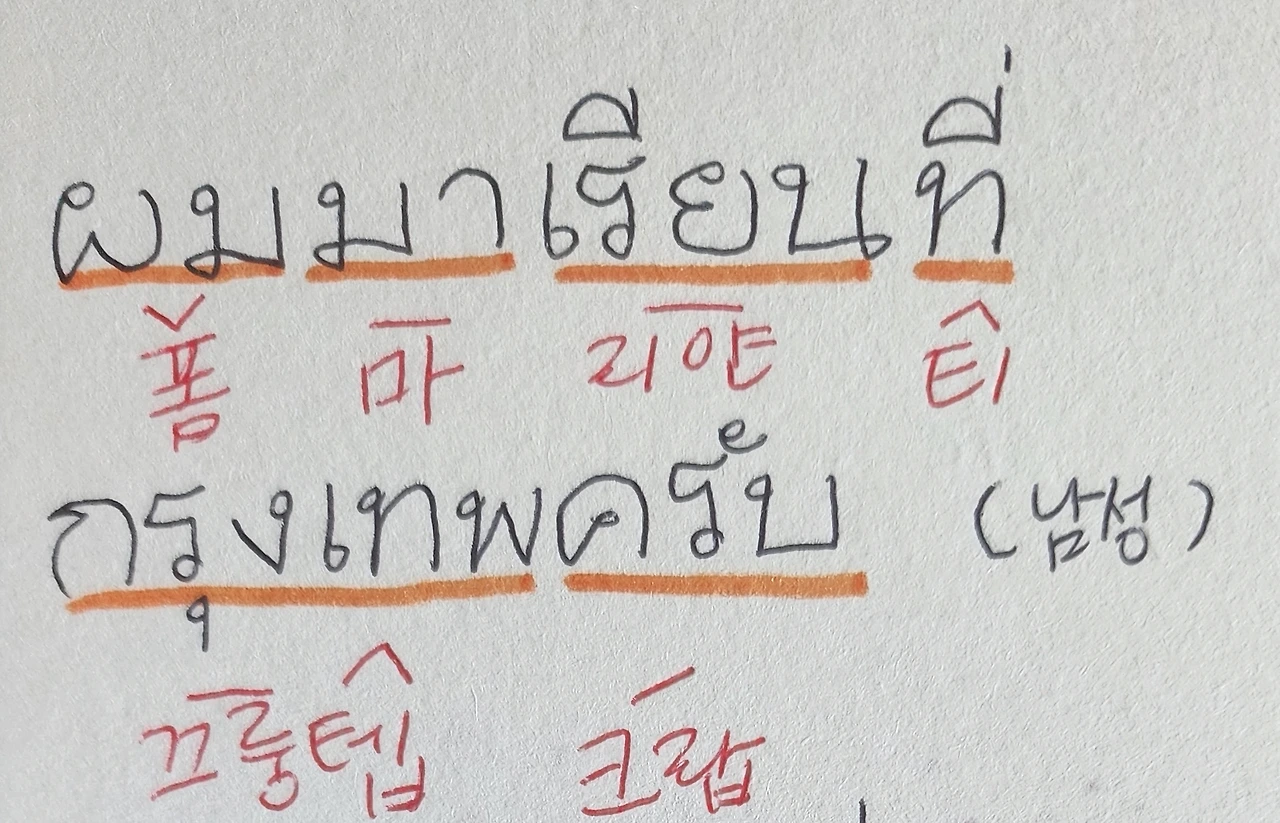 ผมมาเรียนที่
폼 마 리얀 티
กรุงเทพครับ (남성)
끄룽텝 크랍